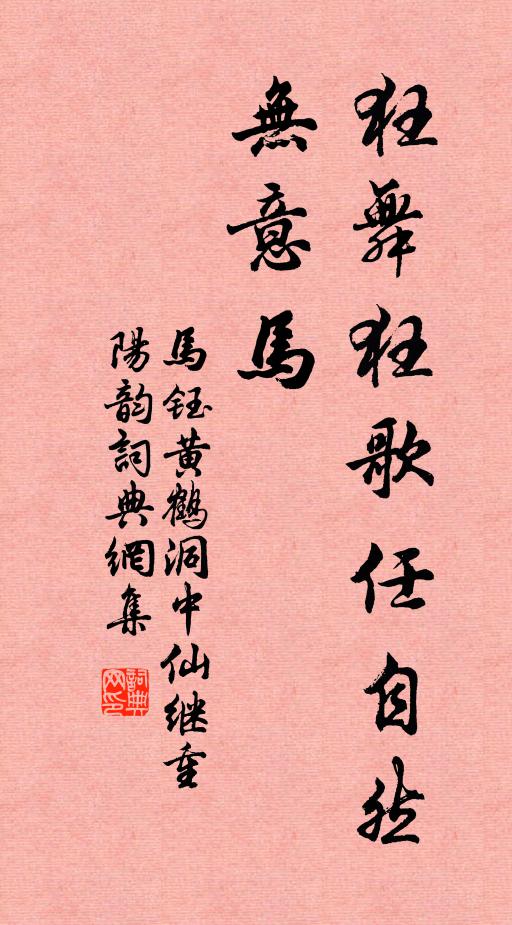 狂舞狂歌任自然
無意馬
馬鈺黄鶴洞中仙继重
陽韵詞典網集
詞典
网印